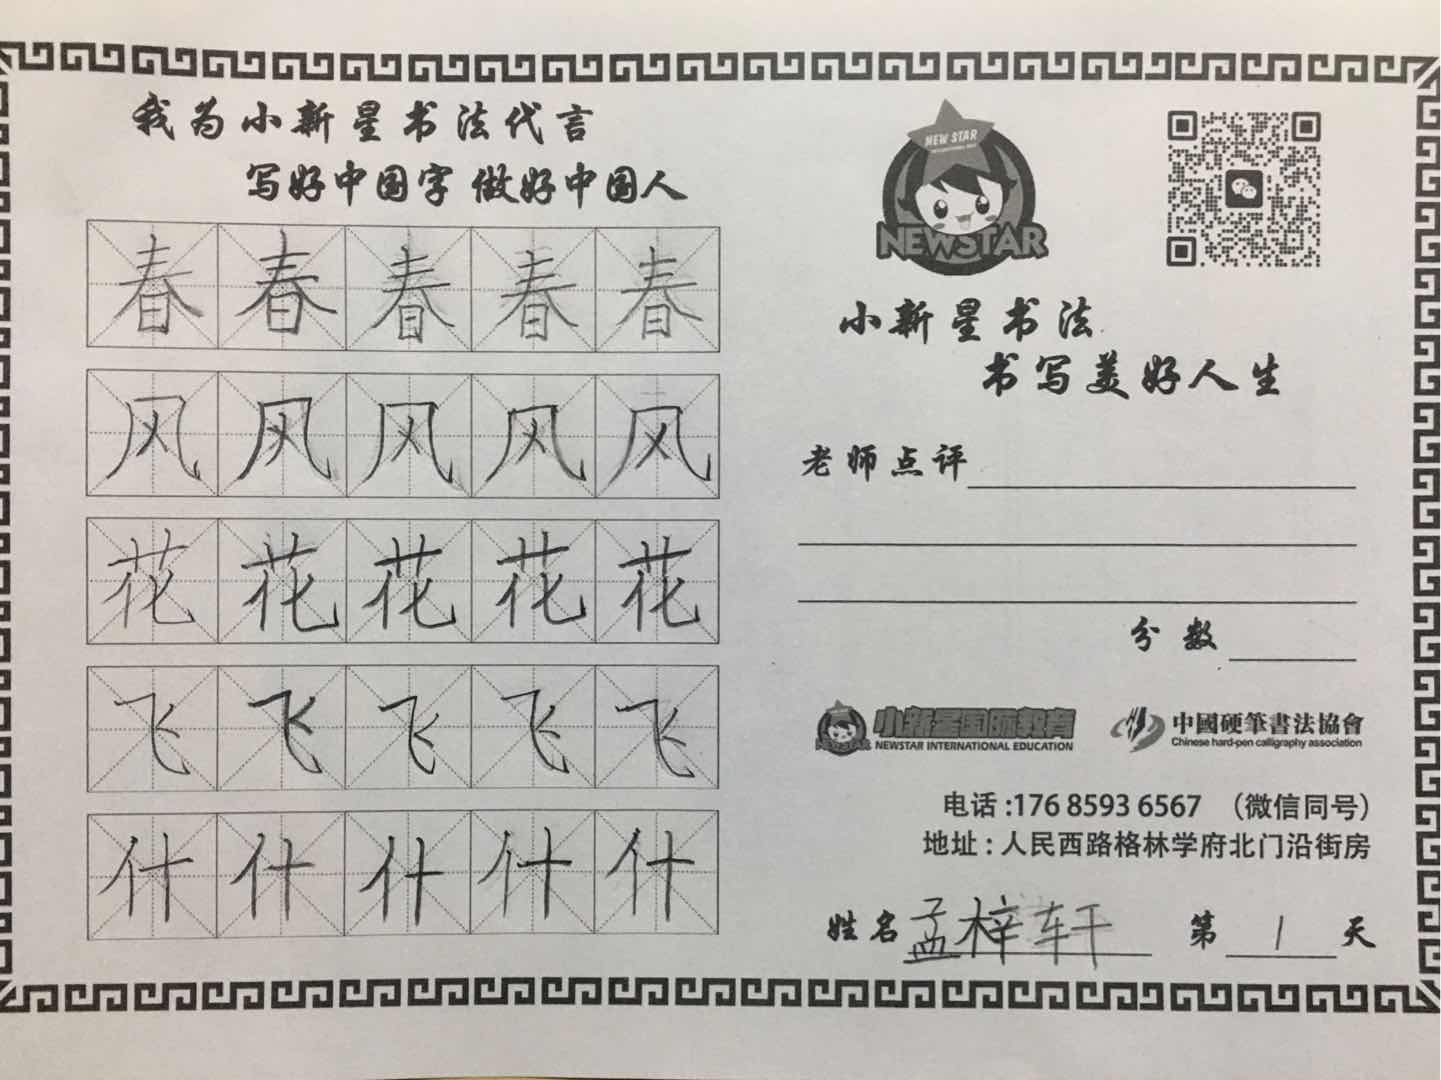 我为小新星书法代言
写好中国字 做好中国人
春春春春春
风风风风风
花花花花花
飞飞飞飞飞
什什什什什
NEW STAR
NEWSTAR
小新星书法
书写美好人生
老师点评
分数
NEWSTAR
小新星国际教育
NEWSTAR INTERNATIONAL EDUCATION
中國硬筆書法協會
Chinese hard-pen calligraphy association
电话:176 8593 6567 （微信同号）
地址：人民西路格林学府北门沿街房
姓名 孟梓轩 第 1 天